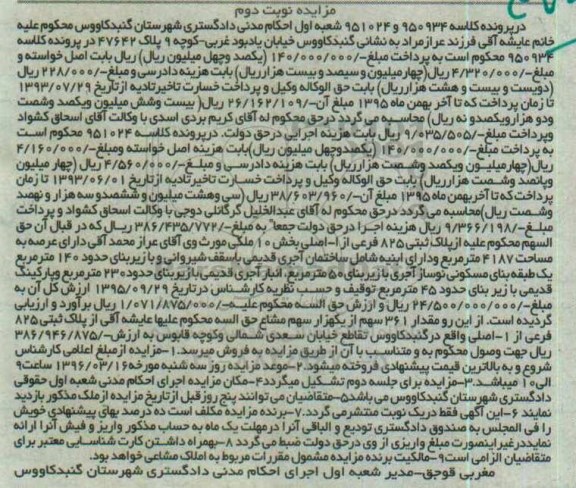 مزایده نوبت دوم
درپرونده کلاسه ۹۵۰۹۳۴ و ۹۵۱۰۲۴ شعبه اول احکام مدنی دادگستری شهرستان گنبدکاووس محکوم علیه
خانم عایشه آقی فرزند عرازمراد به نشانی گنبدکاووس خیابان یادبود غربی-کوچه ۹ پلاک ۴۷۶۴۲ در پرونده کلاسه
۹۵۰۹۳۴ محکوم است به پرداخت مبلغ-/۱۴۰/۰۰۰/۰۰۰ (یکصد وچهل میلیون ریال) ریال بابت اصل خواسته و
مبلغ-/۴/۳۲۰/۰۰۰ ریال(چهارمیلیون و سیصد و بیست هزارریال) بابت هزینه دادرسی و مبلغ-/۲۲۸/۰۰۰ ریال
(دویست و بیست و هشت هزارریال) بابت حق الوکاله وکیل و پرداخت خسارت تاخیرتادیه ازتاریخ ۱۳۹۳/۰۷/۲۹
تا زمان پرداخت که تا آخر بهمن ماه ۱۳۹۵ مبلغ آن-/۲۶/۱۶۲/۱۰۹ ریال( بیست وشش میلیون ویکصد وشصت
ودو هزارویکصدو نه ریال) محاسبه می گردد درحق محکوم له آقای کریم بردی اسدی با وکالت آقای اسحاق کشواد
وپرداخت مبلغ-/۹/۰۳۵/۵۰۵ ریال بابت هزینه اجرایی درحق دولت. درپرونده کلاسه ۹۵۱۰۲۴ محکوم است
به پرداخت مبلغ-/۱۴۰/۰۰۰/۰۰۰ (یکصدوچهل میلیون ریال)بابت هزینه اصل خواسته ومبلغ-/۴/۱۶۰/۰۰۰
ریال(چهارمیلیون ویکصد وشصت هزارریال) بابت هزینه دادرسی و مبلغ-/۴/۵۶۰/۰۰۰ ریال (چهار میلیون
وپانصد وشصت هزارریال) بابت حق الوکاله وکیل و پرداخت خسارت تاخیرتادیه ازتاریخ ۱۳۹۳/۰۶/۰۱ تا زمان
پرداخت که تا آخربهمن ماه ۱۳۹۵ مبلغ آن-/۳۸/۶۰۳/۹۶۰ ریال (سی وهشت میلیون و ششصدو سه هزار و نهصد
وشصت ریال)محاسبه می گردد درحق محکوم له آقای عبدالخلیل گرگانلی دوجی با وکالت اسحاق کشواد و پرداخت
مبلغ-/۹/۳۶۶/۱۹۸ ریال هزینه اجرا درحق دولت جمعا" به مبلغ-/۳۸۶/۴۳۵/۷۷۲ ریال که در قبال آن حق
السهم محکوم علیه ازپلاک ثبتی ۸۲۵ فرعی از۱-اصلی بخش ۱۰ ملکی مورث وی آقای عراز محمد آقی دارای عرصه به
مساحت ۴۱۸۷ مترمربع ودارای ابنیه شامل ساختمان آجری قدیمی باسقف شیروانی و با زیربنای حدود ۱۴۰ مترمربع
یک طبقه بنای مسکونی نوساز آجری با زیربنای ۵۰ مترمربع، انبار آجری قدیمی بازیربنای حدود۲۳۰ مترمربع وپارکینگ
قدیمی با زیر بنای حدود ۴۵ مترمربع توقیف و حسب نظریه کارشناس درتاریخ ۱۳۹۵/۰۹/۲۹ ارزش کل آن به
مبلغ-/۲۴/۵۰۰/۰۰۰/۰۰۰ ریال و ارزش حق السه محکوم علیه-/۱/۰۷۱/۸۷۵/۰۰۰ ریال برآورد و ارزیابی
گردیده است. از این رو مقدار ۳۶۱ سهم از یکهزار سهم مشاع حق السه محکوم علیها عایشه آقی از پلاک ثبتی ۸۲۵
فرعی از ۱-اصلی واقع درگنبدکاووس تقاطع خیابان سعدی شمالی وکوچه قابوس به ارزش-/۳۸۶/۹۴۶/۸۷۵
ریال جهت وصول محکوم به و متناسب با آن از طریق مزایده به فروش میرسد. ۱-مزایده از مبلغ اعلامی کارشناس
شروع و به بالاترین قیمت پیشنهادی فروخته میشود.۲-موعد مزایده روز سه شنبه مورخه ۱۳۹۶/۰۳/۱۶ ساعت۹
الی۱۰ میباشد.۳-مزایده برای جلسه دوم تشکیل میگردد۴-مکان مزایده اجرای احکام مدنی شعبه اول حقوقی
دادگستری شهرستان گنبدکاووس می باشد۵-متقاضیان می توانند پنج روز قبل ازتاریخ مزایده از ملک مذکور بازدید
نمایند ۶-این آگهی فقط دریک نوبت منتشرمی گردد.۷-برنده مزایده مکلف است ده درصد بهای پیشنهادی خویش
را فی المجلس به صندوق دادگستری تودیع و الباقی آنرا درمهلت یک ماه به حساب مذکور واریز و فیش آنرا ارائه
نماید درغیراینصورت مبلغ واریزی از وی درحق دولت ضبط می گردد ۸-بهمراه داشتن کارت شناسایی معتبر برای
متقاضیان الزامی است۹-مالکیت برنده مزایده مشمول مقررات مربوط به املاک مشاعی خواهد بود.
مغربی قوجق-مدیر شعبه اول اجرای احکام مدنی دادگستری شهرستان گنبدکاووس